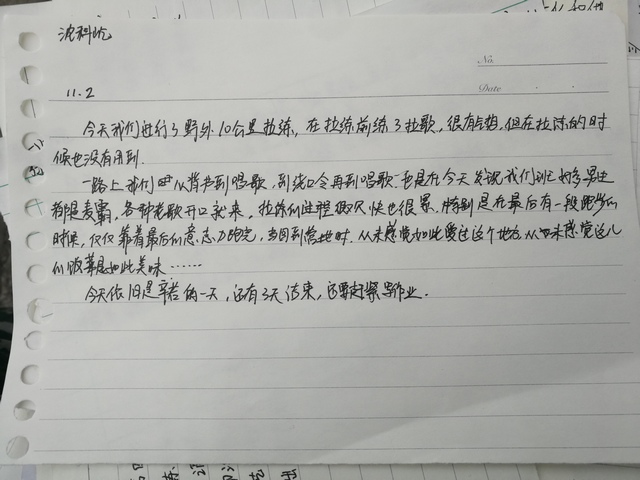 沈科
No.
11.2
Date
今天我们进行了野外10公里拉练,在拉练前练了拉歌,很有占想,但在拉练的时
候也没有用到.
一路上我们从背书到唱歌,到绕口令再到唱歌 也是在今天发现我们班好多男生
都是麦霸,各种老歌开口就来,拉练的进程很快也很累,特别是在最后有一段跑步的
时候,仅仅靠着最后的意志力跑完,当回到营地时,从未感觉如此爱过这个地方,从未感觉这儿
的饭菜是如此美味……
今天依旧是辛苦的一天,还有3天结束,还要赶紧写作业.